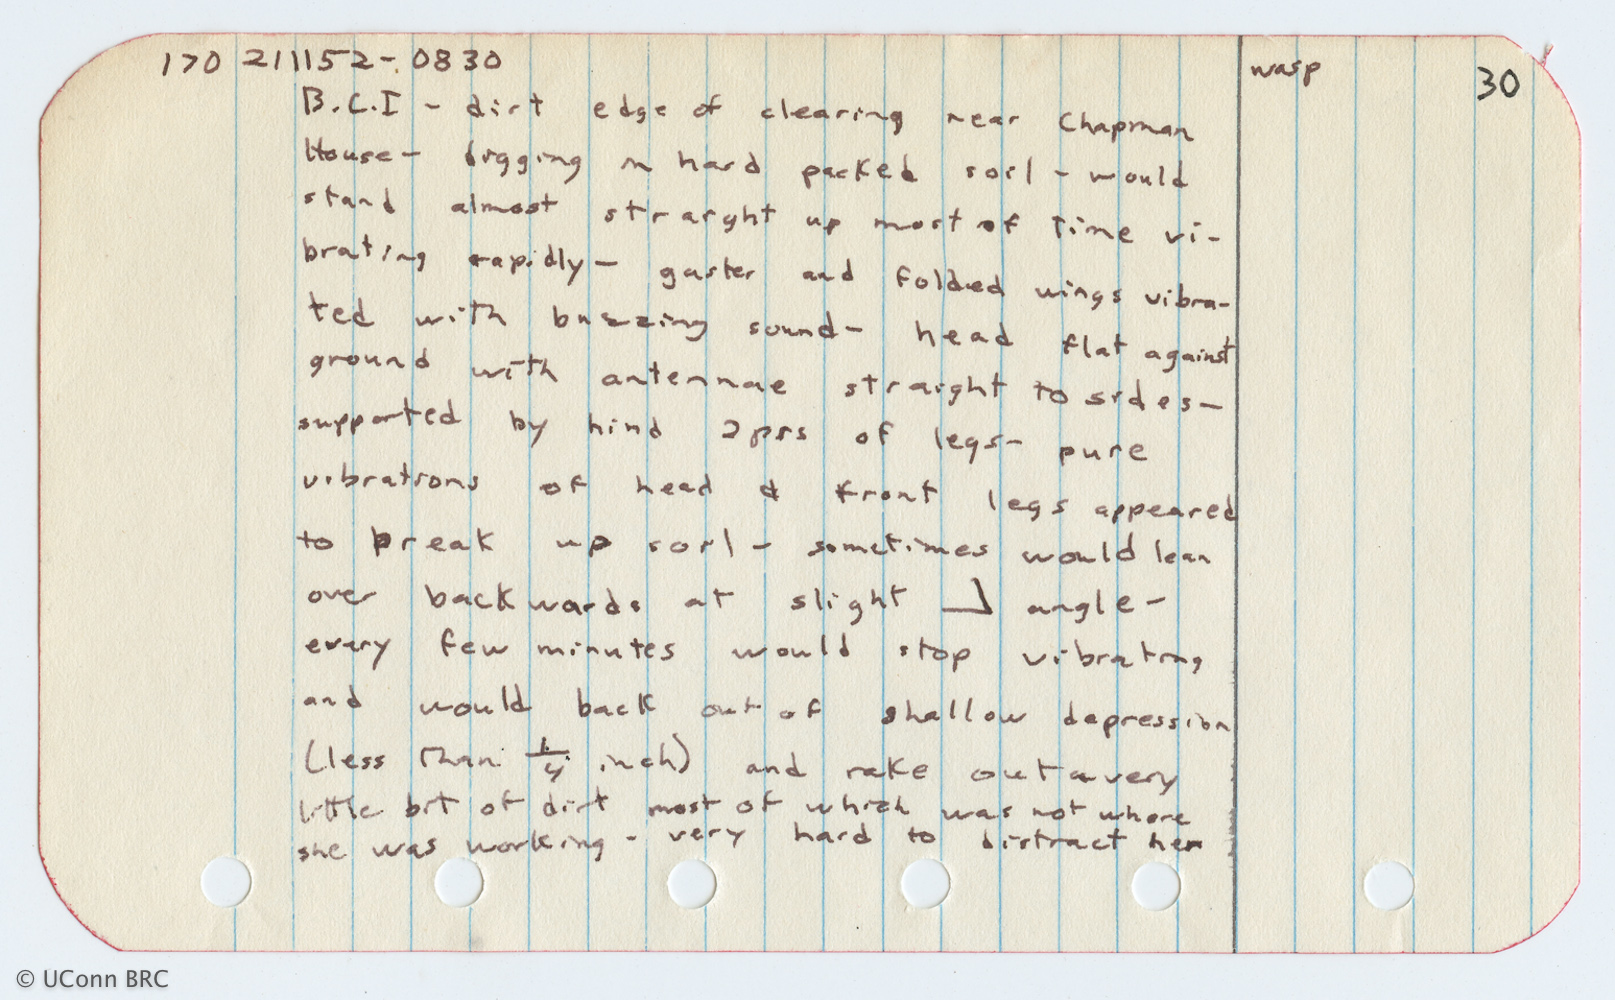 170 211152-0830 wasp 30
B.C.I - dirt edge of clearing near Chapman
House - digging in hard packed soil - would
stand almost straight up most of time vi-
brating rapidly - gaster and folded wings vibra-
ted with buzzing sound - head flat against
ground with antennae straight to sides -
supported by hind 2prs of legs - pure
vibrations of head & front legs appeared
to break up soil - sometimes would lean
over backwards at slight angle -
every few minutes would stop vibrating
and would back out of shallow depression
(less than 1/4 inch) and rake out a very
little bit of dirt most of which was not where
she was working - very hard to distract her
© UConn BRC